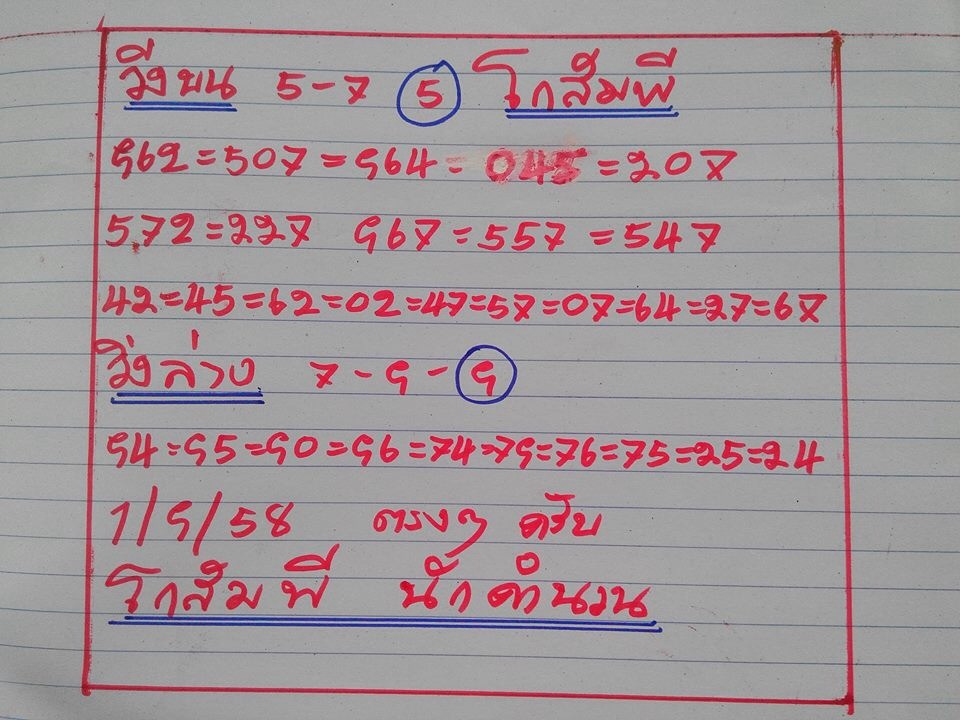 วิ่งบน 5-7 5 โกสัมพี
962=507=964=045=207
572=227 967=557=547
42=45=62=02=47=57=07=64=27=67
วิ่งล่าง 7-9-9
94=95=90=96=74=79=76=75=25=24
1/9/58 ตรงๆ ครับ
โกสัมพี นักคำนวน